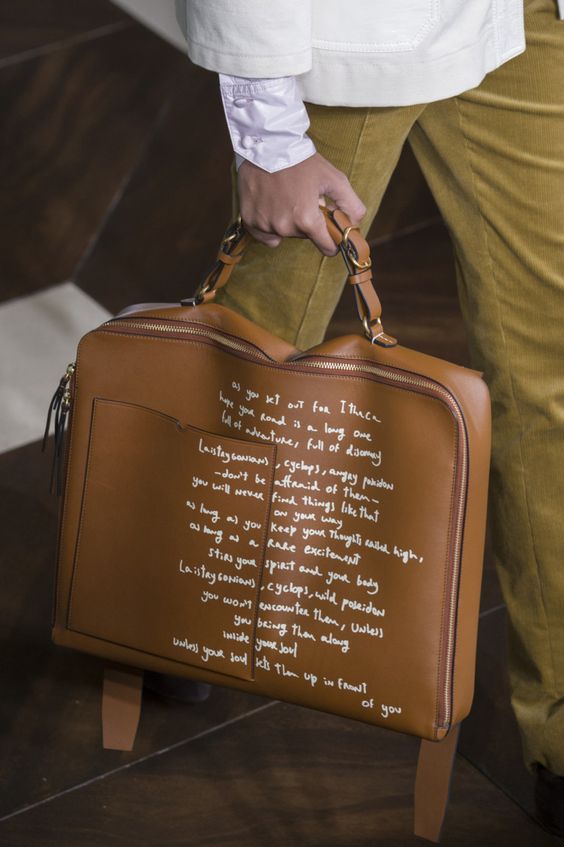 as you set out for Ithaca
hope your road is a long one
full of adventure, full of discovery
Laistrygonians, cyclops, angry poseidon
-don't be affraid of them-
you will never find things like that
on your way
as long as you keep your thoughts raised high,
as long as a rare excitement
stirs your spirit and your body
Laistrygonians, cyclops, wild poseidon
you won't encounter them, unless
you bring them along
inside your soul
unless your soul sets them up in front
of you